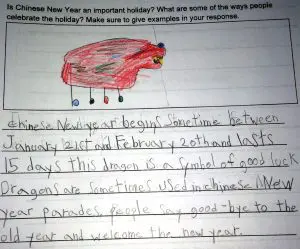 Is Chinese New Year an important holiday? What are some of the ways people
celebrate the holiday? Make sure to give examples in your response.
Chinese New year begins Sometime between
January 21st and February 20th and lasts
15 days this dragon is a symbol of good luck
Dragons are sometimes used in chinese New
year parades. people say good-bye to the
old year and welcome the new year.